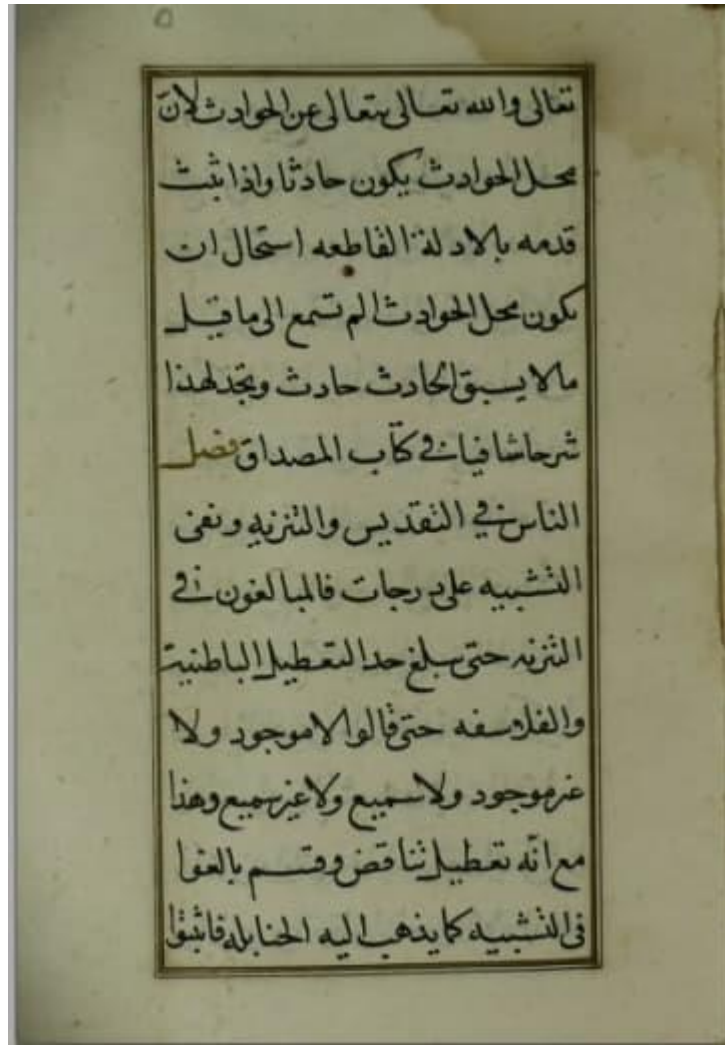 تعالى والله تعالى يتعالى عن الحوادث لانّ
محل الحوادث يكون حادثا واذا ثبت
قدمه بالادلة القاطعه استحال ان
يكون محل الحوادث الم تسمع الى ما قيل
مالا يسبق الحادث حادث وتجد لهذا
شرحا شافيا في كتاب المصداق فصل
الناس في التقديس والتنزيه ونفى
التشبيه على درجات فالمبالغون في
التنزيه حتى يبلغ حد التعطيل الباطنية
والفلاسفه حتى قالوا لا موجود ولا
غير موجود ولا سميع ولا غير سميع وهذا
مع انّه تعطيل تناقض وقسم بالغوا
في التشبيه كما يذهب اليه الحنابله فاثبتوا